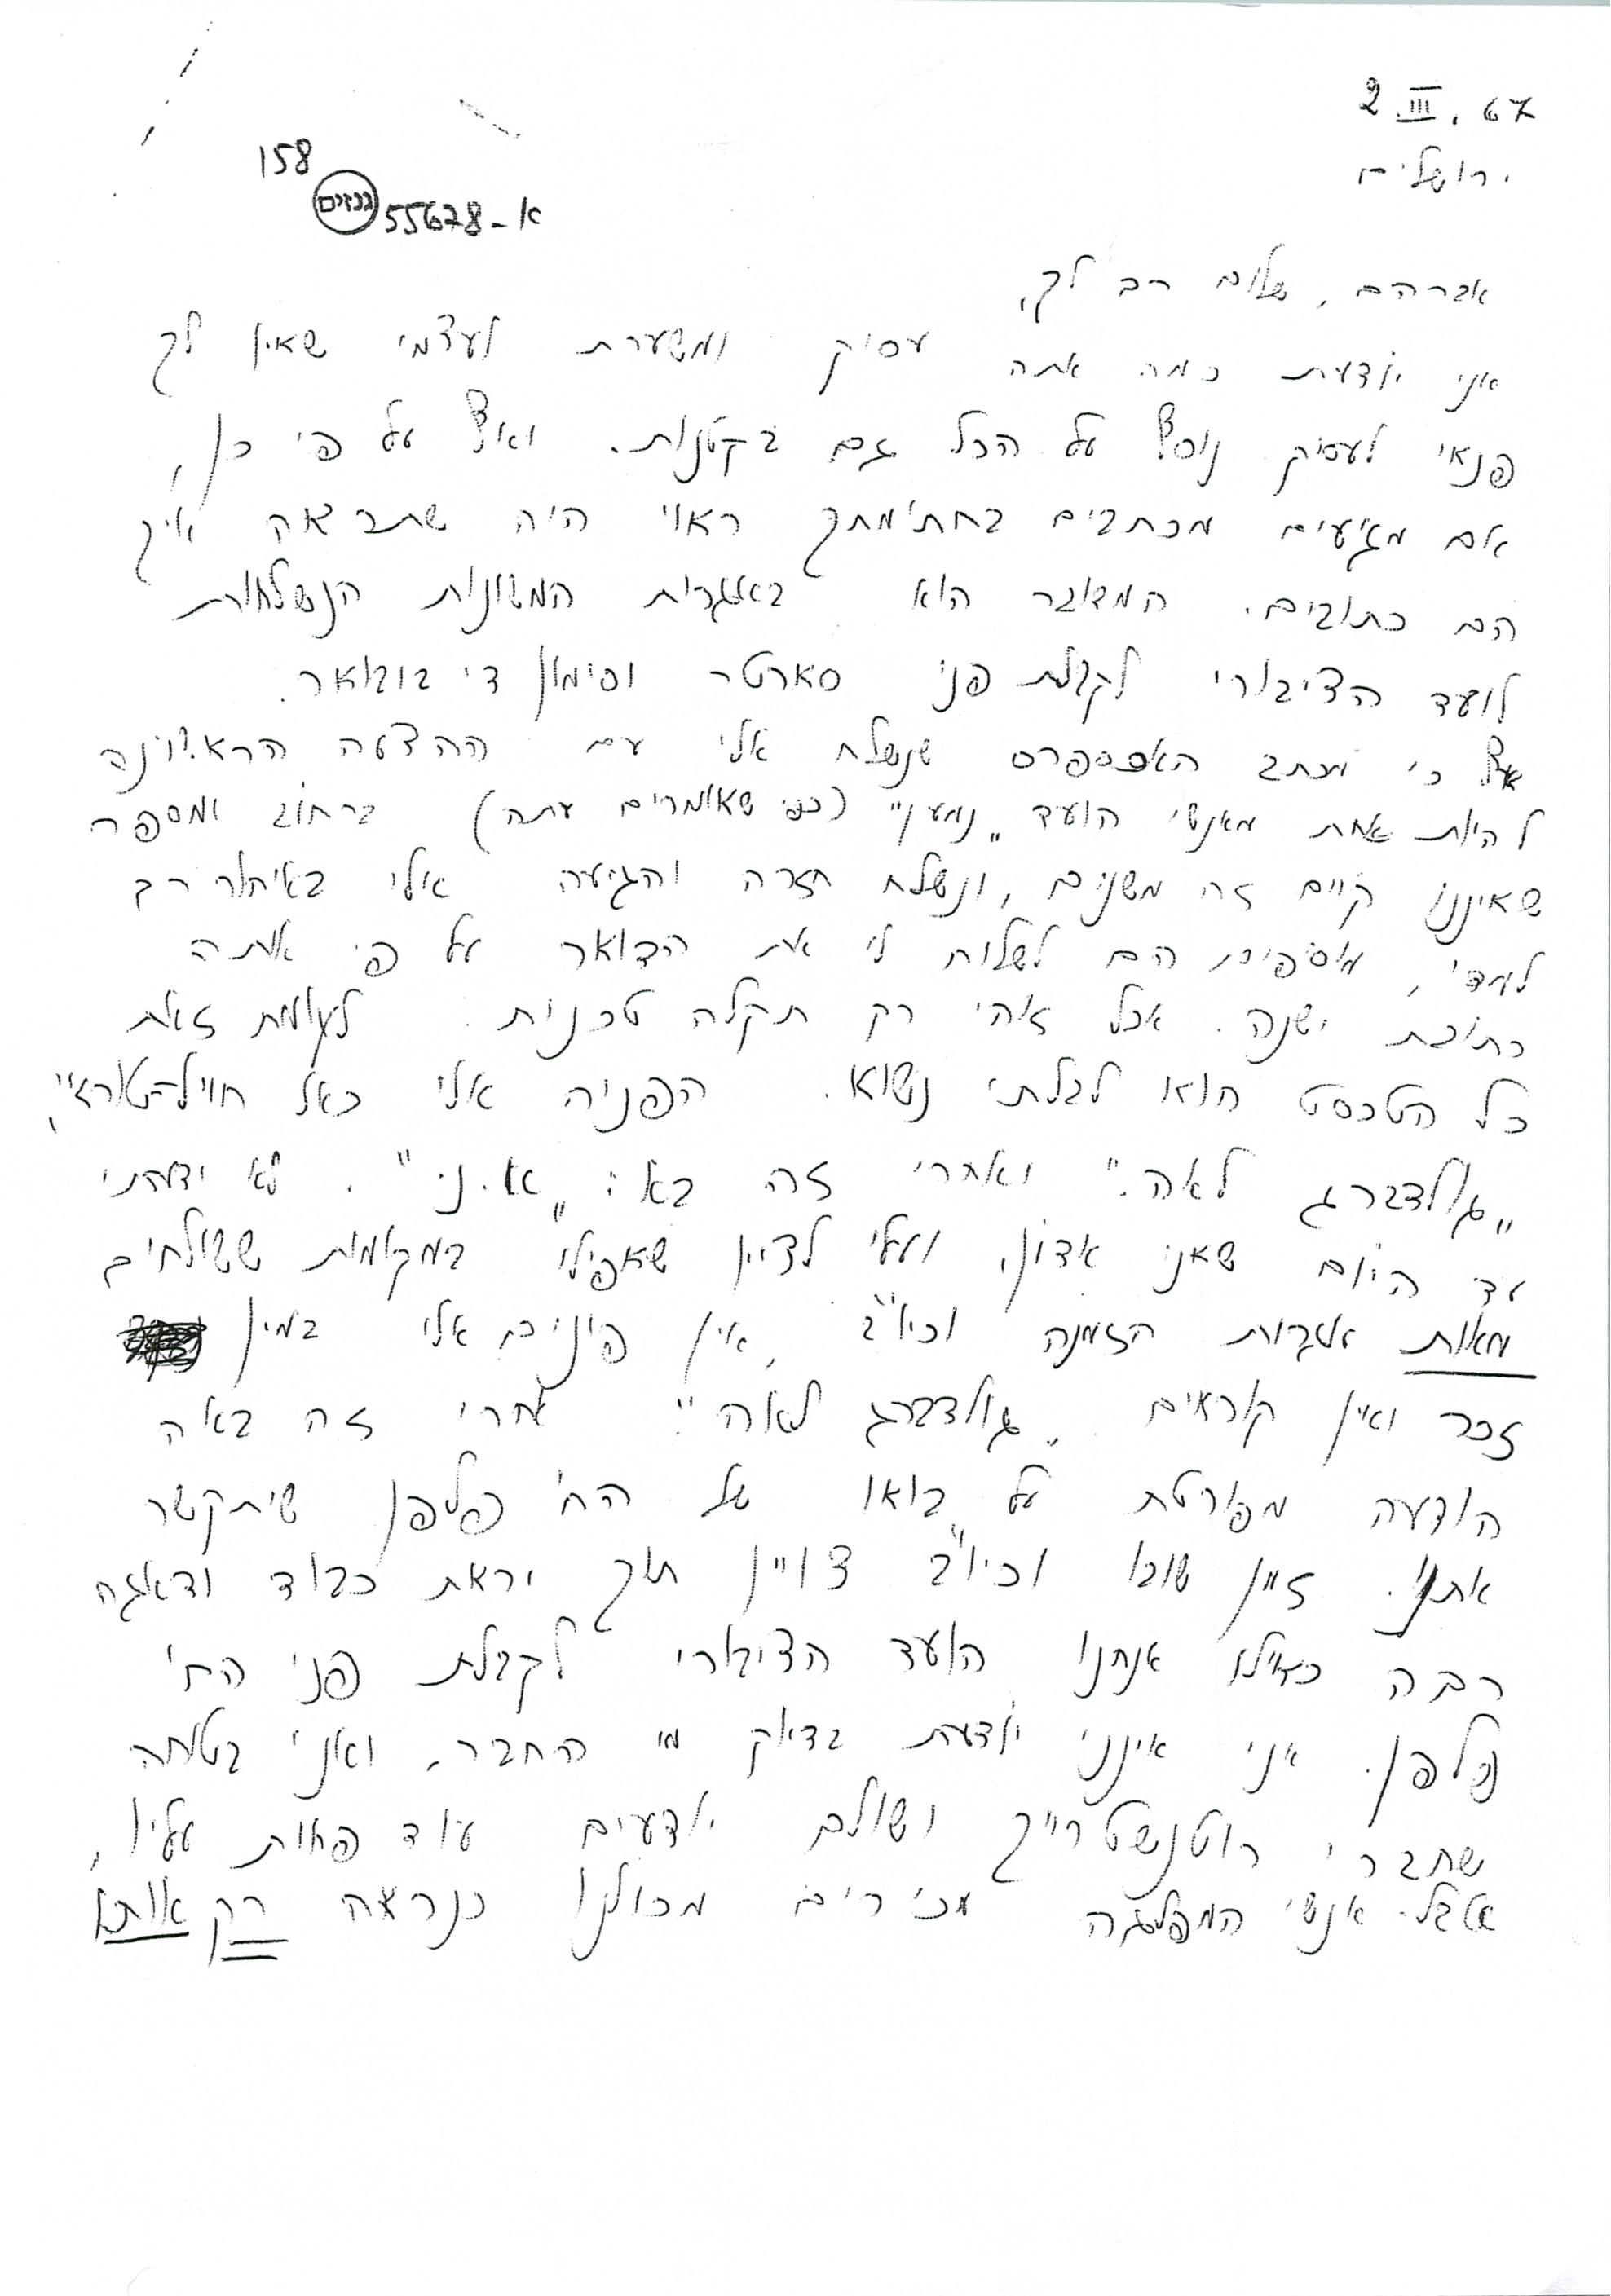 2 III. 67
ירושלים
158
גנזים 55628-א
אברהם, שלום רב לך,
אני יודעת כמה אתה עסוק ומשערת לעצמי שאין לך
פנאי לעסוק נוסף על הכל גם בקטנות. ואף על פי כן,
אם מגיעים מכתבים בחתימתך ראוי היה שתראה איך
הם כתובים. המדובר הוא באגרות המשונות הנשלחות
לועד הציבורי לקבלת פני סארטר וסימון די בובואר.
אף כי מכתב האכספרס שנשלח אלי עם ההצעה הראשונה
להיות אחת מאנשי הועד "נמען" (כפי שאומרים עתה) ברחוב ומספר
שאיננו קיים זה משנים, ונשלח חזרה והגיעה אלי באיחור רב
למדי, מוסיפים הם לשלוח לי את הדואר על פי אותה
כתובת ישנה. אבל זוהי רק תקלה טכנית. לעומת זאת
כל הטכסט הוא לבלתי נשוא. הפניה אלי כאל חויל-טוראי",
"גולדברג לאה." ואחרי זה בא: "א.נ.". לא ידעתי
עד היום שאני אדון, ועלי לציין שאפילו במקומות ששולחים
מאות אגרות הזמנה וכיו"ב, אין פונים אלי במין
זכר ואין קוראים "גולדברג לאה". אחרי זה באה
הודעה מפורטת על בואו של הח' פלפן שיתקשר
אתנו. זמן שובו וכיו"ב צויין תוך יראת כבוד ודאגה
רבה כאילו אנחנו הועד הציבורי לקבלת פני הח'
פלפן. אני אינני יודעת בדיוק מי החבר, ואני בטוחה
שחברי רוטנשטרייך ושולם יודעים עוד פחות עליו,
אבל אנשי המפלגה מכירים מכולנו כנראה רק אותו